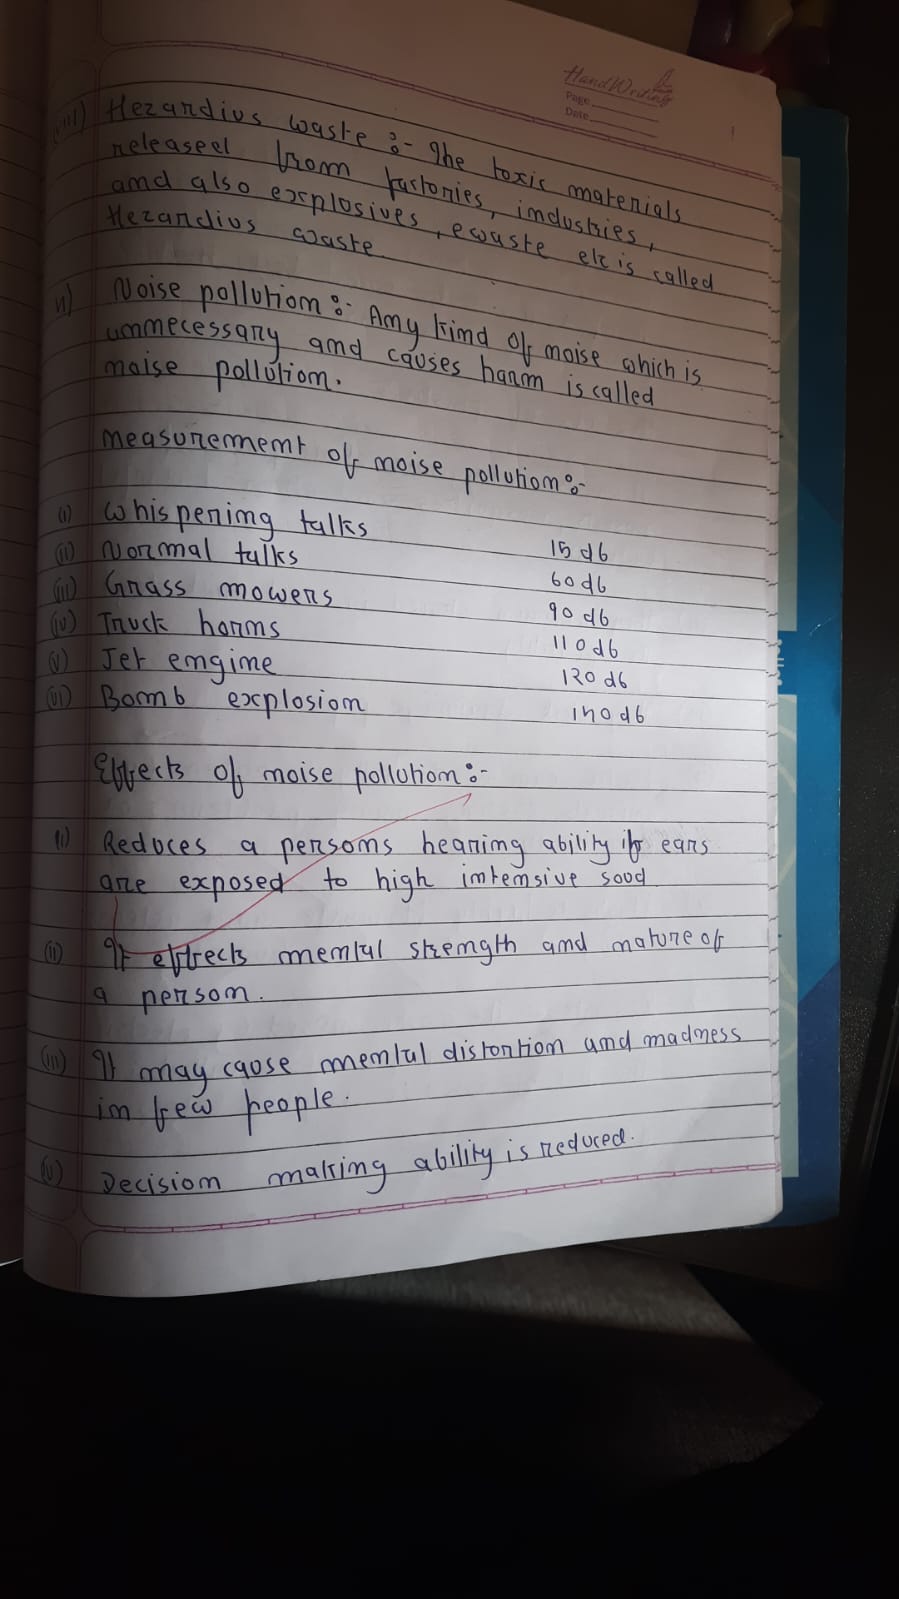 Hand Writing
Page
Date
viii) Hezardius waste :- The toxic materials
released from factories, industries,
and also explosives, ewaste etc is called
Hezardius waste.
Noise pollution :- Any kind of noise which is
unnecessary and causes harm is called
noise pollution.
Measurement of noise pollution :-
(i) Whispering talks 15 db
(ii) Normal talks 60 db
(iii) Grass mowers 90 db
(iv) Truck horns 110 db
(v) Jet engine 120 db
(vi) Bomb explosion 140 db
Effects of noise pollution :-
(i) Reduces a persons hearing ability if ears
are exposed to high intensive soud
(ii) It effects mental strength and nature of
a person.
(iii) It may cause mental distortion and madness
in few people.
Decision making ability is reduced.